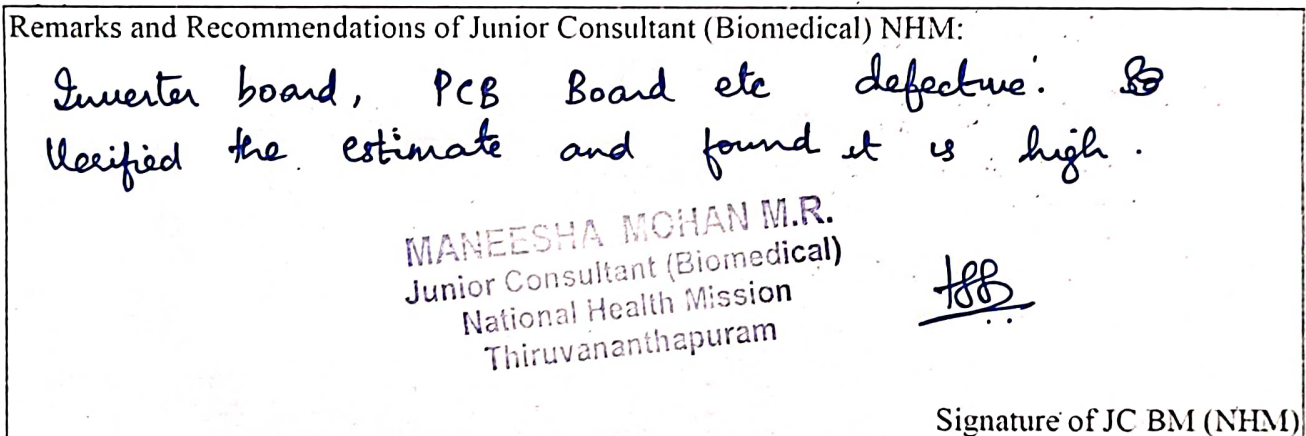 Remarks and Recommendations of Junior Consultant (Biomedical) NHM:
Inverter board, PCB Board etc defective. So
Verified the estimate and found it is high.
MANEESHA MOHAN M.R.
Junior Consultant (Biomedical)
National Health Mission
Thiruvananthapuram
Signature of JC BM (NHM)